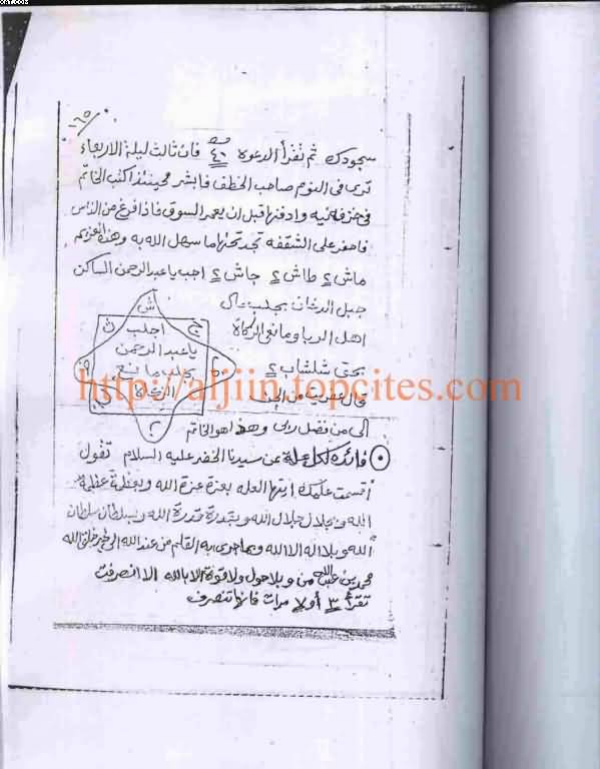 ١٦٥
سجودك ثم تقرأ الدعوة ٤٠ فان ثالث ليلة الاربعاء
ترى فى النوم صاحب الخطف فابشر فحينئذ اكتب الخاتم
فى وادفنها قبل ان يعمر السوق فاذا فرغ من الناس
فاحفر على الشقفه تجد تحتها ما سهل الله به وهذه العزيمه
ماش ٢ طاش ٢ جاش ٢ اجب يا عبد الرحمن الساكن
جبل الدخان بجلب مال
اهل الربا ومانعى الزكاة
بحق شلشاب ٢
قال عفريت من الجن
الى من فضل ربى وهذا هو الخاتم
ش
ج اجلب ث
يا عبد الرحمن
مانع
الزكاة
http://aljiin.topcites.com
فائدة لكل علة عن سيدنا الخضر عليه السلام تقول
أقسمت عليك ايتها العله بعزة عزة الله وبعظمة عظمة
الله وبجلال جلال الله وبقدرة قدرة الله وبسلطان سلطان
الله وبلا اله الا الله وبما جرى به القلم من عند الله الى خير خلق الله
محمد بن عبد الله وبلا حول ولا قوة الا بالله الا انصرفت
تقرأ ٣ أو ٧ مرات فانها تنصرف